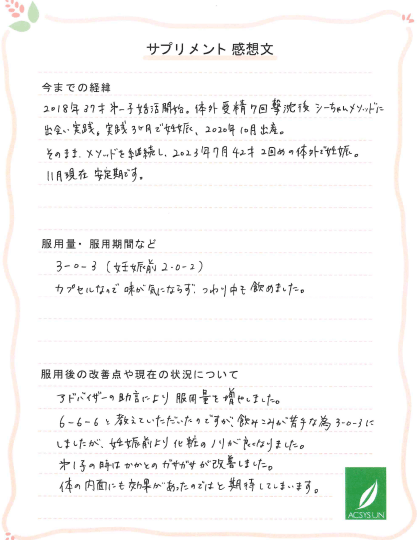 サプリメント 感想文
今までの経緯
2018年37才 第一子妊活開始。体外受精7回撃沈後 シーちゃんメソッドに
出会い実践。実践3ヶ月で妊娠し、2020年10月出産。
そのまま、メソッドを継続し、2023年7月42才2回めの体外で妊娠。
11月現在 安定期です。
服用量・服用期間など
3-0-3 (妊娠前 2-0-2)
カプセルなので 味が気にならず、つわり中も 飲めました。
服用後の改善点や現在の状況について
アドバイザーの助言により 服用量を増やしました。
6-6-6と教えていただいたのですが、飲みこみが苦手な為 3-0-3に
しましたが、妊娠前より化粧のノリが良くなりました。
第1子の時はかかとのガサガサが改善しました。
体の内面にも効果があったのではと期待してしまいます。
ACSYSUN